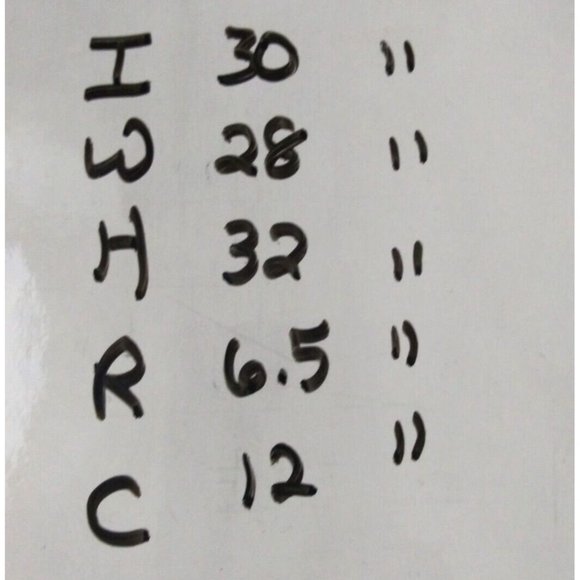 I 30 "
W 28 "
H 32 "
R 6.5 "
C 12 "